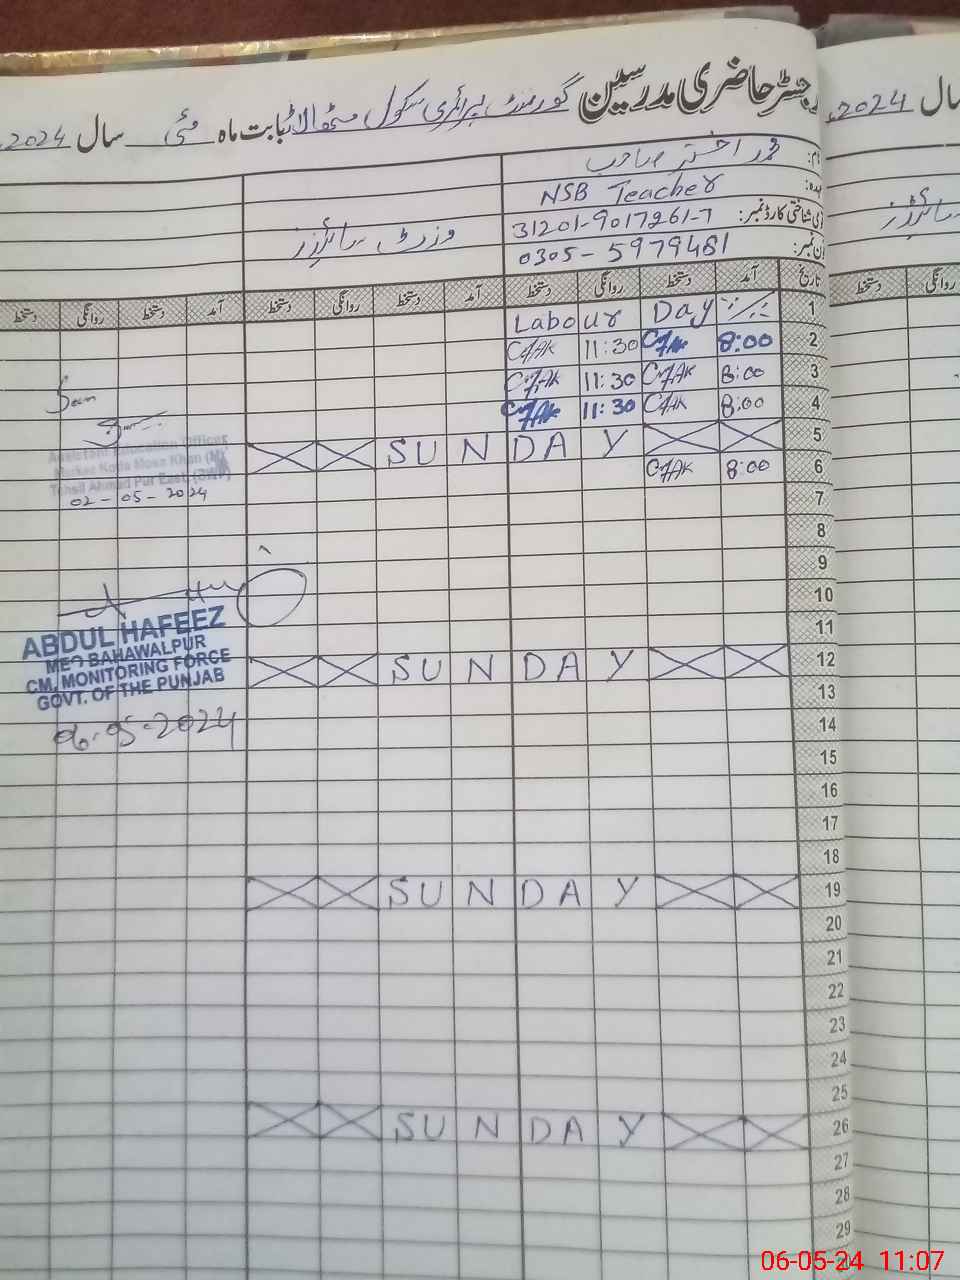 رجسٹر حاضری مدرسین گورنمنٹ پرائمری سکول بابت ماہ مئی سال 2024ء
سال 2024ء
نام: اختر صاحب
عہدہ: NSB Teacher
قومی شناختی کارڈ نمبر: 31201-9017261-7
فون نمبر: 0305-5979481
وزٹ
تاریخ آمد دستخط روانگی دستخط آمد دستخط روانگی دستخط آمد دستخط روانگی دستخط
روانگی دستخط
1 Labour Day
2 8:00 11:30
3 8:00 11:30
4 8:00 11:30
5 SUNDAY
6 8:00
7
8
9
10
11
12 SUNDAY
13
14
15
16
17
18
19 SUNDAY
20
21
22
23
24
25
26 SUNDAY
27
28
29
Assistant Education Officer
Markaz Kotla Mosa Khan (M)
Tehsil Ahmad Pur East (BWP)
02-05-2024
ABDUL HAFEEZ
MEO BAHAWALPUR
CM, MONITORING FORCE
GOVT. OF THE PUNJAB
06-05-2024
06-05-24 11:07